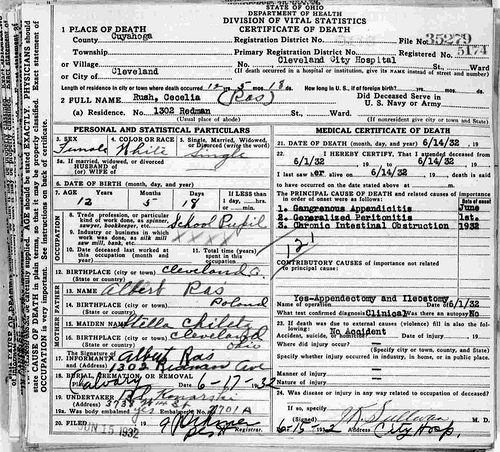 STATE OF OHIO
DEPARTMENT OF HEALTH
DIVISION OF VITAL STATISTICS
CERTIFICATE OF DEATH
1 PLACE OF DEATH
County Cuyahoga
Registration District No.
File No. 35279
Township
Primary Registration District No.
Registered No. 5174
or Village
No. Cleveland City Hospital St., Ward
or City of Cleveland
(If death occurred in a hospital or institution, give its NAME instead of street and number)
Length of residence in city or town where death occurred 12 yrs. 5 mos. 18 ds. How long in U. S., if of foreign birth? yrs. mos. ds.
2 FULL NAME Rush, Cecelia (Ras)
Did Deceased Serve in U. S. Navy or Army
(a) Residence. No. 1302 Redman St., Ward.
(Usual place of abode) (If nonresident give city or town and State)
PERSONAL AND STATISTICAL PARTICULARS
3. SEX Female
4. COLOR OR RACE White
5. Single, Married, Widowed, or Divorced (write the word) Single
5a. If married, widowed, or divorced
HUSBAND of
(or) WIFE of
6. DATE OF BIRTH (month, day, and year)
7. AGE Years 12 Months 5 Days 18 If LESS than 1 day, hrs. or min.
OCCUPATION
8. Trade, profession, or particular kind of work done, as spinner, sawyer, bookkeeper, etc. School Pupil
9. Industry or business in which work was done, as silk mill, saw mill, bank, etc.
10. Date deceased last worked at this occupation (month and year)
11. Total time (years) spent in this occupation
12. BIRTHPLACE (city or town) Cleveland O.
(State or country)
FATHER
13. NAME Albert Ras
14. BIRTHPLACE (city or town) Poland
(State or country)
MOTHER
15. MAIDEN NAME Stella
16. BIRTHPLACE (city or town) Cleveland
(State or country) Ohio
17. The Signature of INFORMANT Albert Ras
and (Address) 1302 Redman Ave
18. BURIAL, CREMATION, OR REMOVAL
Calvary Date 6-17-1932
19. UNDERTAKER
(Address)
19a. Was body embalmed yes Embalmer's No. 2701A
20. FILED JUN 15 1932 Registrar.
MEDICAL CERTIFICATE OF DEATH
21. DATE OF DEATH (month, day, and year) 6/14/32, 19
22. I HEREBY CERTIFY, That I attended deceased from
6/1/32, 19 6/14/32, 19
I last saw her alive on 6/14/32, 19 death is said
to have occurred on the date stated above at m.
The PRINCIPAL CAUSE OF DEATH and related causes of importance in order of onset were as follows:
Date of onset
1. Gangrenous Appendicitis June
2. Generalized Peritonitis 1st.
3. Chronic Intestinal Obstruction 1932
121
CONTRIBUTORY CAUSES of importance not related to principal cause:
Yes-Appendectomy and Ileostomy
Name of operation Date of 6/1/32
What test confirmed diagnosis Clinical Was there an autopsy No
23. If death was due to external causes (violence) fill in also the following:
Accident, suicide, or homicide No Accident Date of injury , 19
Where did injury occur?
(Specify city or town, county, and State)
Specify whether injury occurred in industry, in home, or in public place.
Manner of injury
Nature of injury
24. Was disease or injury in any way related to occupation of deceased?
If so, specify
(Signed) Sullivan M. D.
6-15-32 Address City Hosp.